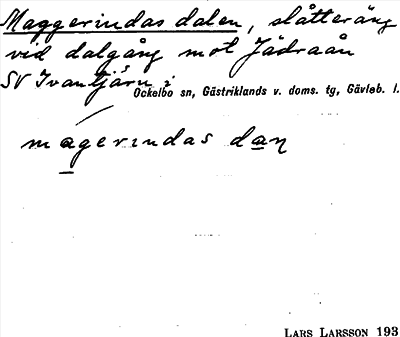 Maggerindas dalen, slåtteräng
vid dalgång mot Jädraån
SV Ivantjärn i
Ockelbo sn, Gästriklands v. doms. tg, Gävleb. l.
magerındas dan
LARS LARSSON 193